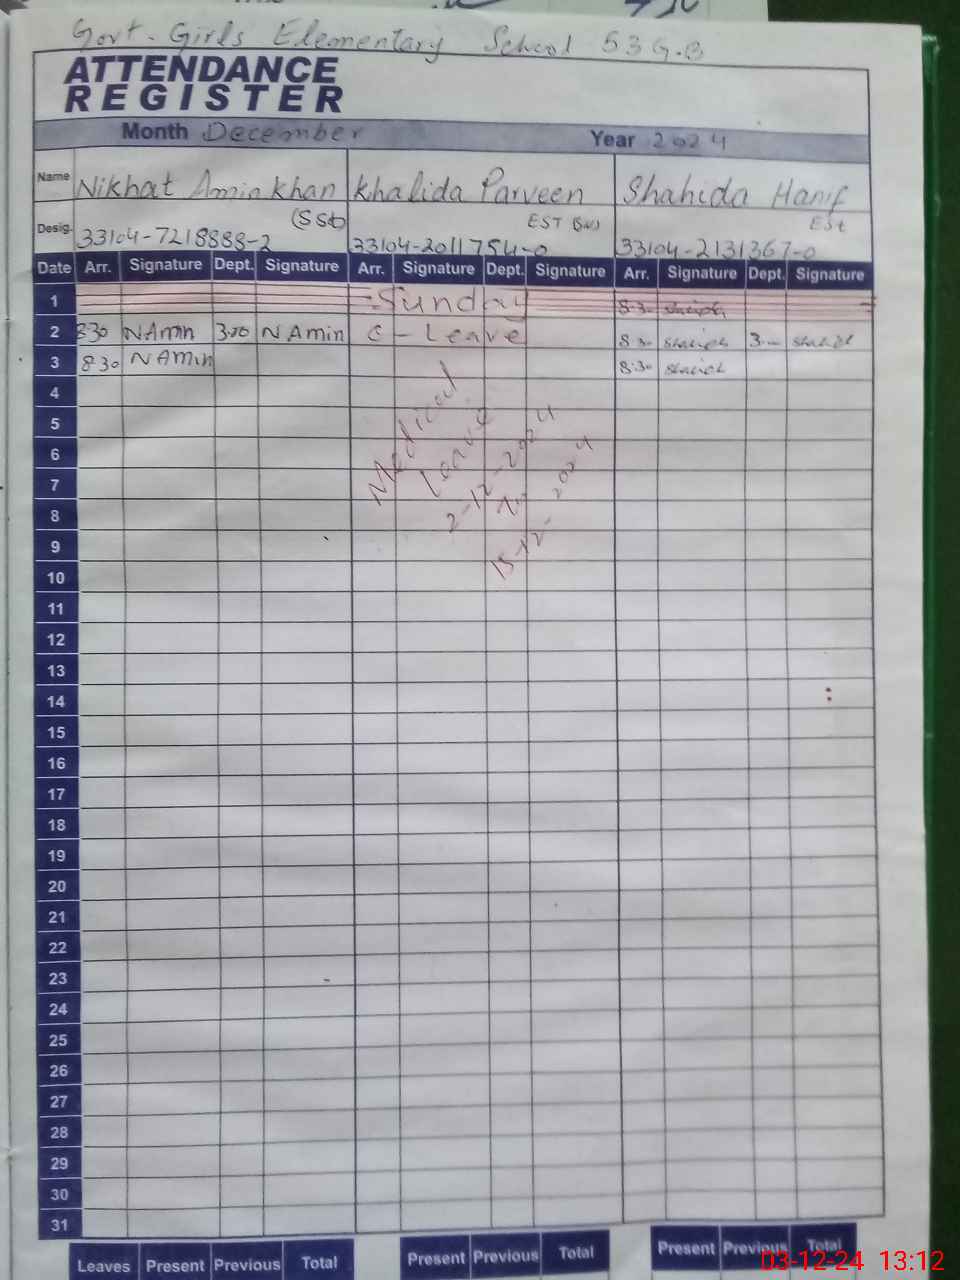 Govt. Girls Elementary School 53 G.B
ATTENDANCE
REGISTER
Month December Year 2024
Name Nikhat Amin khan Khalida Parveen Shahida Hanif
(SSt) EST Est
Desig. 33104-7218888-2 33104-2011754-0 33104-2131367-0
Date Arr. Signature Dept. Signature Arr. Signature Dept. Signature Arr. Signature Dept. Signature
1 Sunday 8:30
2 8:30 NAmin 3:00 NAmin C - Leave 8:30
3 8:30 NAmin 8:30
4
5
6
7
8
9
10
11
12
13
14
15
16
17
18
19
20
21
22
23
24
25
26
27
28
29
30
31
Medical
Leave
2-12-2024
To
15-12-2024
Leaves Present Previous Total Present Previous Total Present Previous Total
03-12-24 13:12